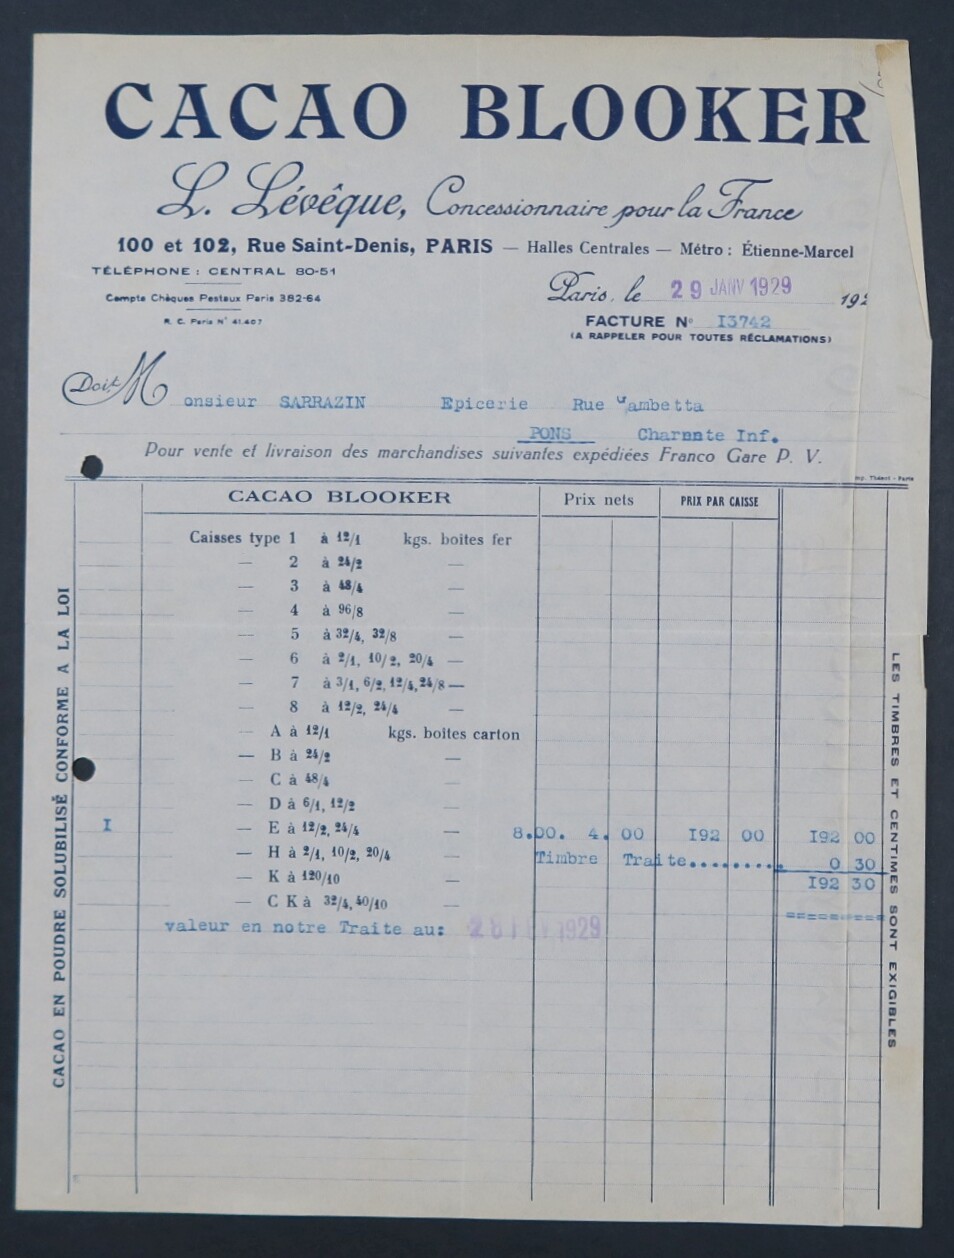 CACAO BLOOKER
L. Lévêque, Concessionnaire pour la France
100 et 102, Rue Saint-Denis, PARIS — Halles Centrales — Métro : Étienne-Marcel
TÉLÉPHONE : CENTRAL 80-51
Compte Chèques Postaux Paris 382-64
R. C. Paris N° 41.407
Paris, le 29 JANV 1929 192
FACTURE N° I3742
(A RAPPELER POUR TOUTES RÉCLAMATIONS)
Doit M onsieur SARRAZIN Epicerie Rue Gambetta
PONS Charente Inf.
Pour vente et livraison des marchandises suivantes expédiées Franco Gare P. V.
Imp. Théost - Paris
CACAO BLOOKER Prix nets PRIX PAR CAISSE
Caisses type 1 à 12/1 kgs. boîtes fer
— 2 à 24/2 —
— 3 à 48/4 —
— 4 à 96/8 —
— 5 à 32/4, 32/8 —
— 6 à 2/1, 10/2, 20/4 —
— 7 à 3/1, 6/2, 12/4, 24/8 —
— 8 à 12/2, 24/4 —
— A à 12/1 kgs. boîtes carton
— B à 24/2 —
— C à 48/4 —
— D à 6/1, 12/2
I — E à 12/2, 24/4 — 8.00. 4. 00 I92 00 I92 00
— H à 2/1, 10/2, 20/4 — Timbre Traite......... 0 30
— K à 120/10 — I92 30
— C K à 32/4, 40/10 —
=========
valeur en notre Traite au: 28 FEV 1929
CACAO EN POUDRE SOLUBILISÉ CONFORME A LA LOI
LES TIMBRES ET CENTIMES SONT EXIGIBLES